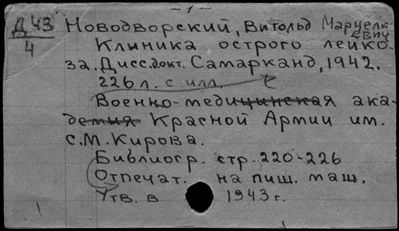 - 1 -
Д 43
4
Новодворский, Витольд Марцелиевич
Клиника острого лейко-
за. Дисс. докт. Самарканд, 1942.
226 л. с илл.
Военно-медицинская ака-
демия Красной Армии им.
С.М. Кирова.
Библиогр. стр. 220-226
Отпечат. на пиш. маш.
Утв. в 1943 г.